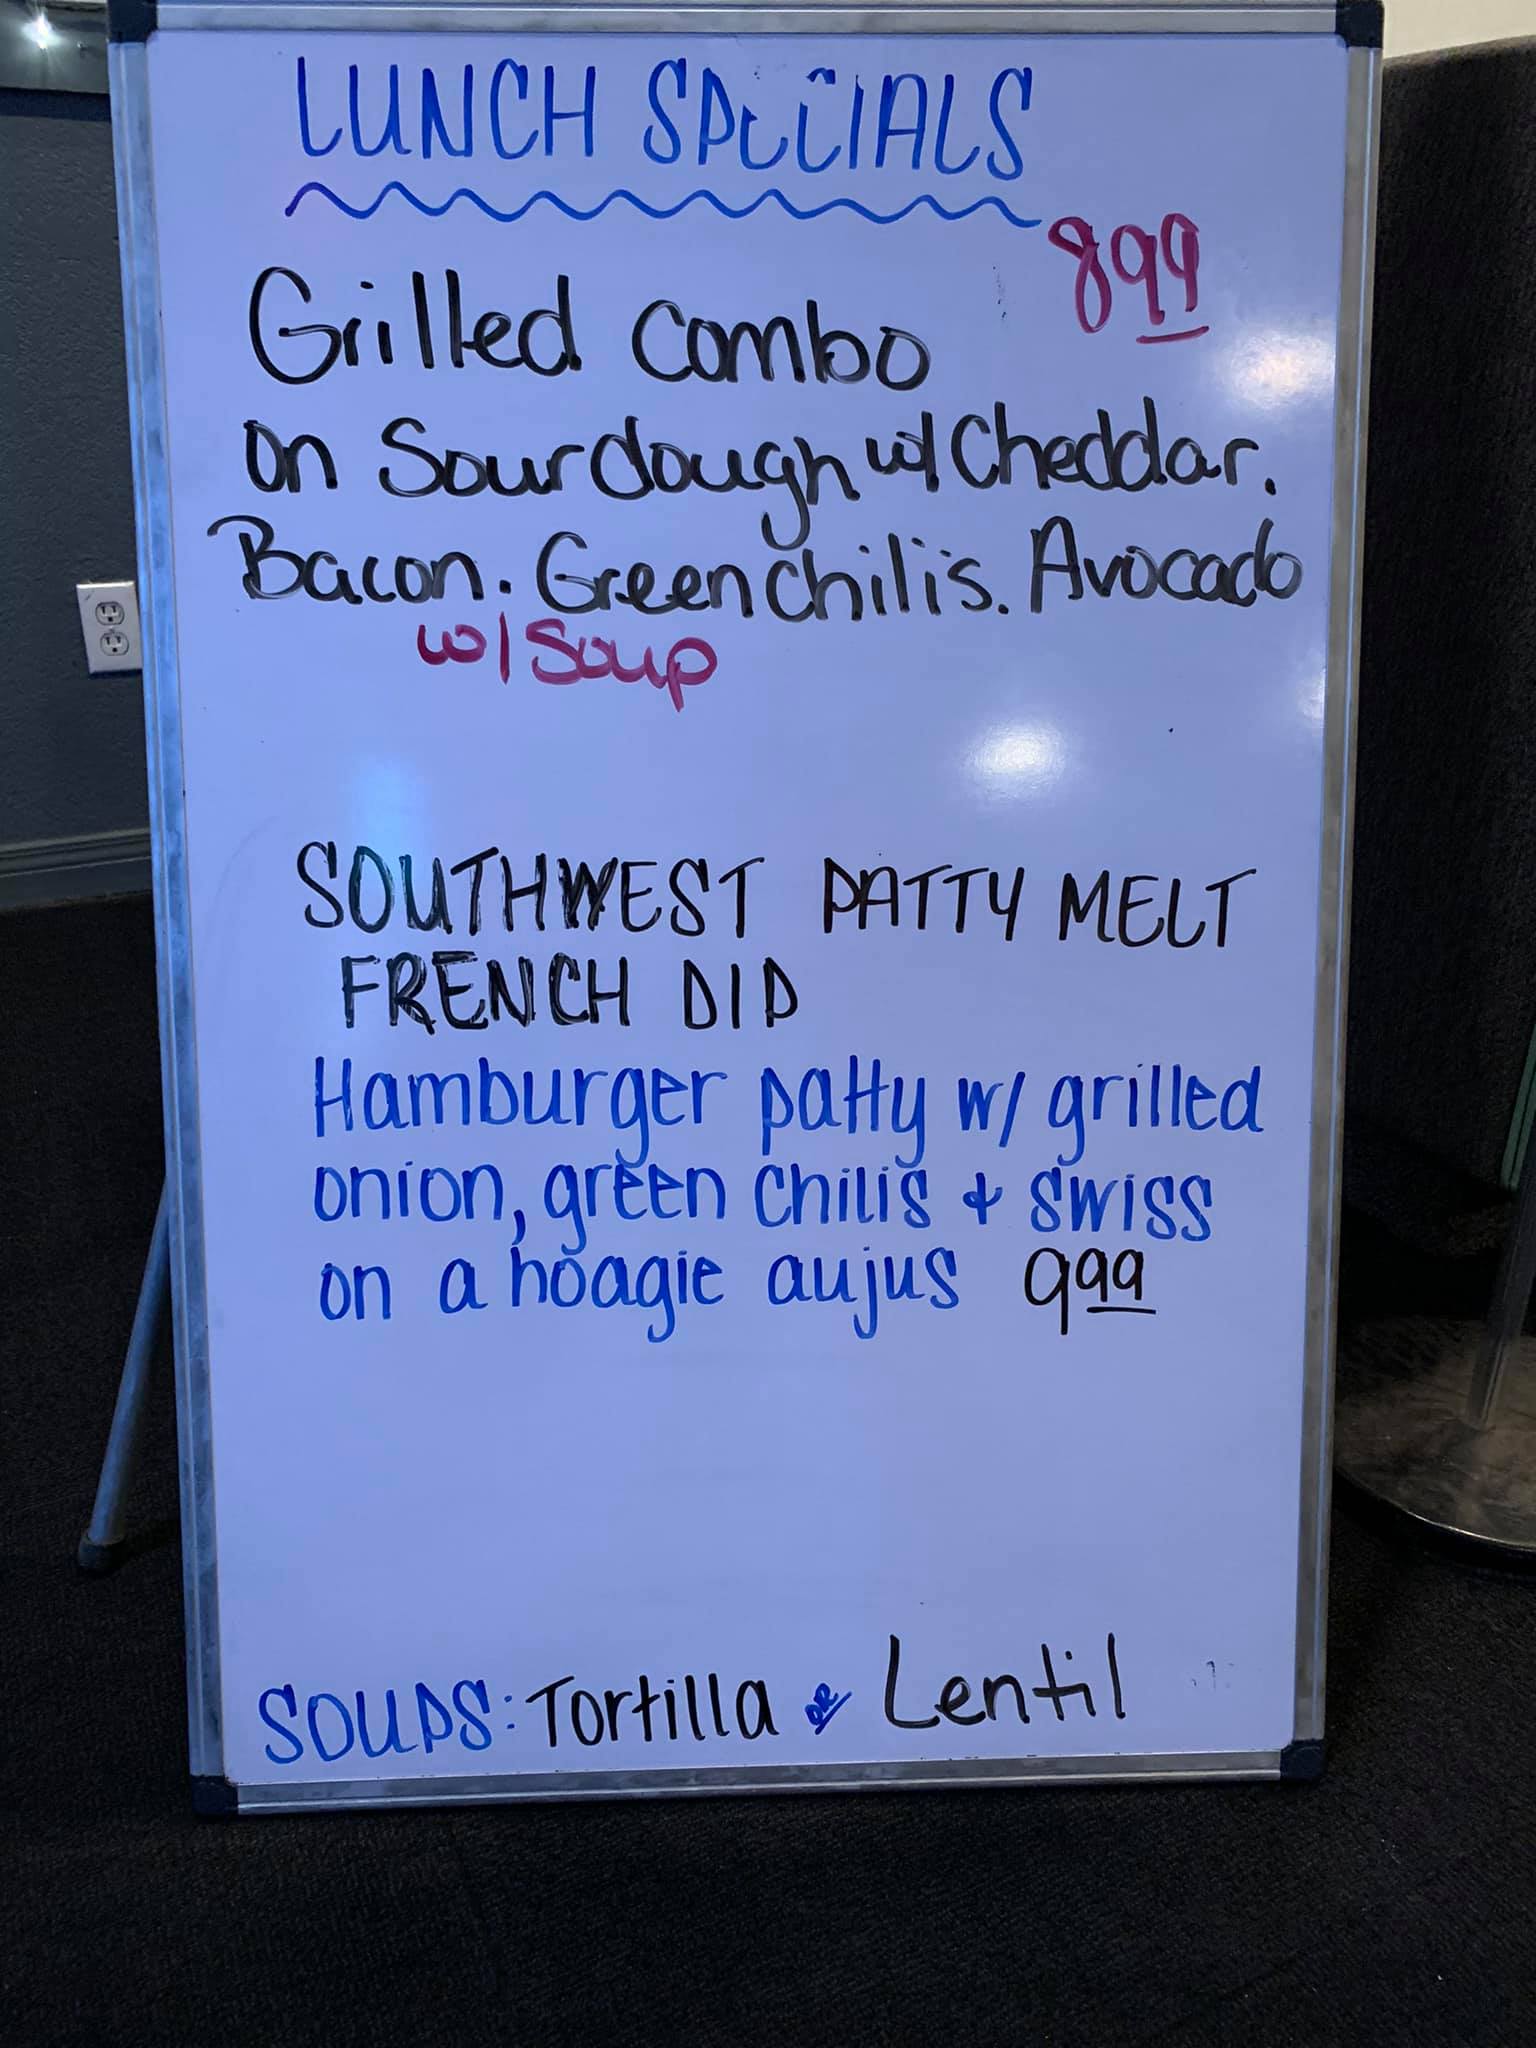 LUNCH SPECIALS
899
Grilled Combo
on Sourdough w/ Cheddar.
Bacon. Green Chilis. Avocado
w/ Soup
SOUTHWEST PATTY MELT
FRENCH DIP
Hamburger patty w/ grilled
onion, green chilis & swiss
on a hoagie aujus 999
SOUPS: Tortilla OR Lentil